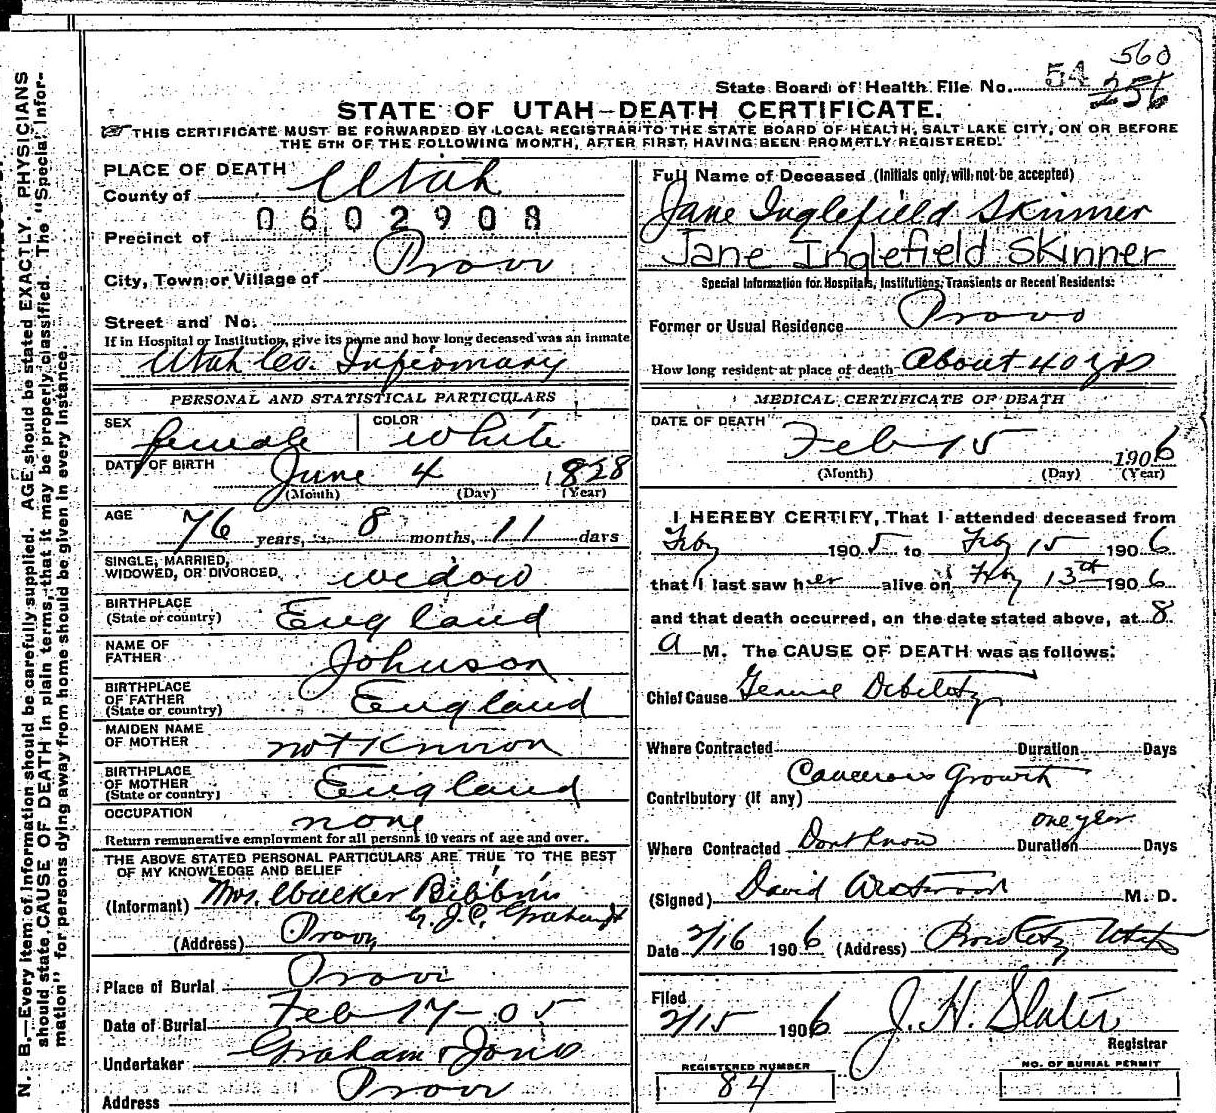 560
State Board of Health File No. 54 256
STATE OF UTAH—DEATH CERTIFICATE.
THIS CERTIFICATE MUST BE FORWARDED BY LOCAL REGISTRAR TO THE STATE BOARD OF HEALTH, SALT LAKE CITY, ON OR BEFORE
THE 5TH OF THE FOLLOWING MONTH, AFTER FIRST HAVING BEEN PROMPTLY REGISTERED.
PLACE OF DEATH
County of Utah
0602908
Precinct of
City, Town or Village of Provo
Street and No.
If in Hospital or Institution, give its name and how long deceased was an inmate
Utah Co. Infirmary
PERSONAL AND STATISTICAL PARTICULARS
SEX female COLOR white
DATE OF BIRTH June 4 1828
(Month) (Day) (Year)
AGE 76 years, 8 months, 11 days
SINGLE, MARRIED,
WIDOWED, OR DIVORCED widow
BIRTHPLACE
(State or country) England
NAME OF
FATHER Johnson
BIRTHPLACE
OF FATHER
(State or country) England
MAIDEN NAME
OF MOTHER not Known
BIRTHPLACE
OF MOTHER
(State or country) England
OCCUPATION none
Return remunerative employment for all persons 10 years of age and over.
THE ABOVE STATED PERSONAL PARTICULARS ARE TRUE TO THE BEST
OF MY KNOWLEDGE AND BELIEF
(Informant) Mrs. Walker Bibbins
J. C. Graham
(Address) Provo
Place of Burial Provo
Date of Burial Feb 17-05
Undertaker Graham & Jones
Address Provo
Full Name of Deceased (Initials only, will not be accepted)
Jane Inglefield Skinner
Jane Inglefield Skinner
Special Information for Hospitals, Institutions, Transients or Recent Residents:
Former or Usual Residence Provo
How long resident at place of death About 40 yrs
MEDICAL CERTIFICATE OF DEATH
DATE OF DEATH Feb 15 1906
(Month) (Day) (Year)
I HEREBY CERTIFY, That I attended deceased from
Feby 1905 to Feby 15 1906
that I last saw her alive on Feby 13th 1906
and that death occurred, on the date stated above, at 8
a M. The CAUSE OF DEATH was as follows:
Chief Cause General Debility
Where Contracted Duration Days
Contributory (if any) Cancerous Growth
Where Contracted Dont know Duration one year Days
(Signed) David Westwood M. D.
Date 2/16 1906 (Address) Utah
Filed
2/15 1906 J. H. Slater
Registrar
REGISTERED NUMBER
84
NO. OF BURIAL PERMIT
N. B.—Every item of information should be carefully supplied. AGE should be stated EXACTLY. PHYSICIANS
should state CAUSE OF DEATH in plain terms, that it may be properly classified. The "Special Infor-
mation" for persons dying away from home should be given in every instance.